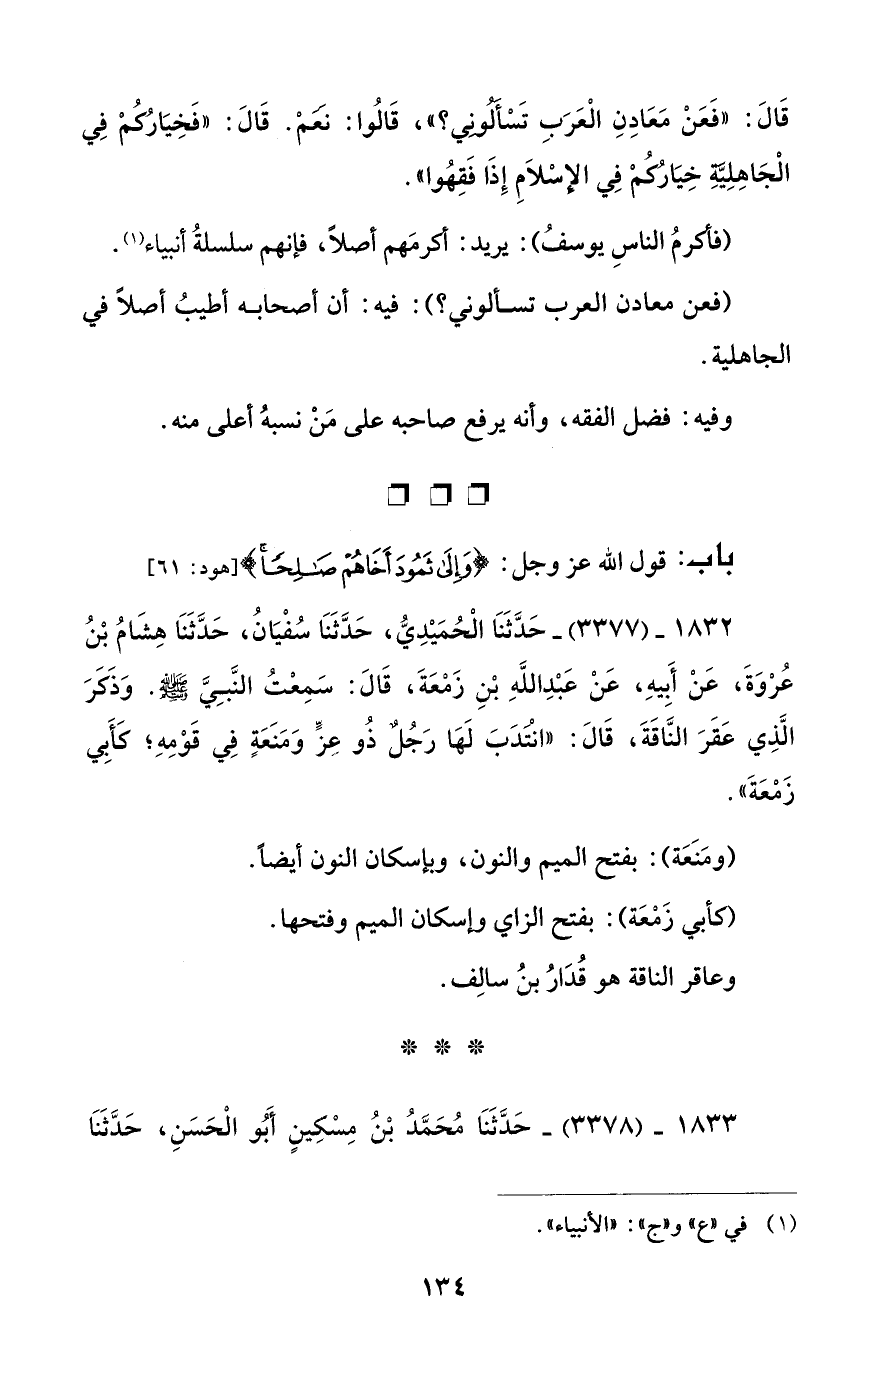 قَالَ: «فَعَنْ مَعَادِنِ الْعَرَبِ تَسْأَلُونِي؟»، قَالُوا: نَعَمْ. قَالَ: «فَخِيَارُكُمْ فِي
الْجَاهِلِيَّةِ خِيَارُكُمْ فِي الإِسْلاَمِ إِذَا فَقِهُوا».
(فأكرمُ الناسِ يوسفُ): يريد: أكرمَهم أصلاً، فإنهم سلسلةُ أنبياء(١).
(فعن معادن العرب تسألوني؟): فيه: أن أصحابه أطيبُ أصلاً في
الجاهلية.
وفيه: فضل الفقه، وأنه يرفع صاحبه على مَنْ نسبهُ أعلى منه.
باب: قول الله عز وجل: ﴿وَإِلَىٰ ثَمُودَ أَخَاهُمْ صَٰلِحًا﴾ [هود: ٦١]
١٨٣٢ ـ (٣٣٧٧) ـ حَدَّثَنَا الْحُمَيْدِيُّ، حَدَّثَنَا سُفْيَانُ، حَدَّثَنَا هِشَامُ بْنُ
عُرْوَةَ، عَنْ أَبِيهِ، عَنْ عَبْدِاللَّهِ بْنِ زَمْعَةَ، قَالَ: سَمِعْتُ النَّبِيَّ ﷺ. وَذَكَرَ
الَّذِي عَقَرَ النَّاقَةَ، قَالَ: «انْتَدَبَ لَهَا رَجُلٌ ذُو عِزٍّ وَمَنَعَةٍ فِي قَوْمِهِ؛ كَأَبِي
زَمْعَةَ».
(ومَنَعَة): بفتح الميم والنون، وبإسكان النون أيضاً.
(كأبي زَمْعَة): بفتح الزاي وإسكان الميم وفتحها.
وعاقر الناقة هو قُدَارُ بنُ سالِف.
* * *
١٨٣٣ ـ (٣٣٧٨) ـ حَدَّثَنَا مُحَمَّدُ بْنُ مِسْكِينٍ أَبُو الْحَسَنِ، حَدَّثَنَا
(١) في «ع» و«ج»: «الأنبياء».
١٣٤